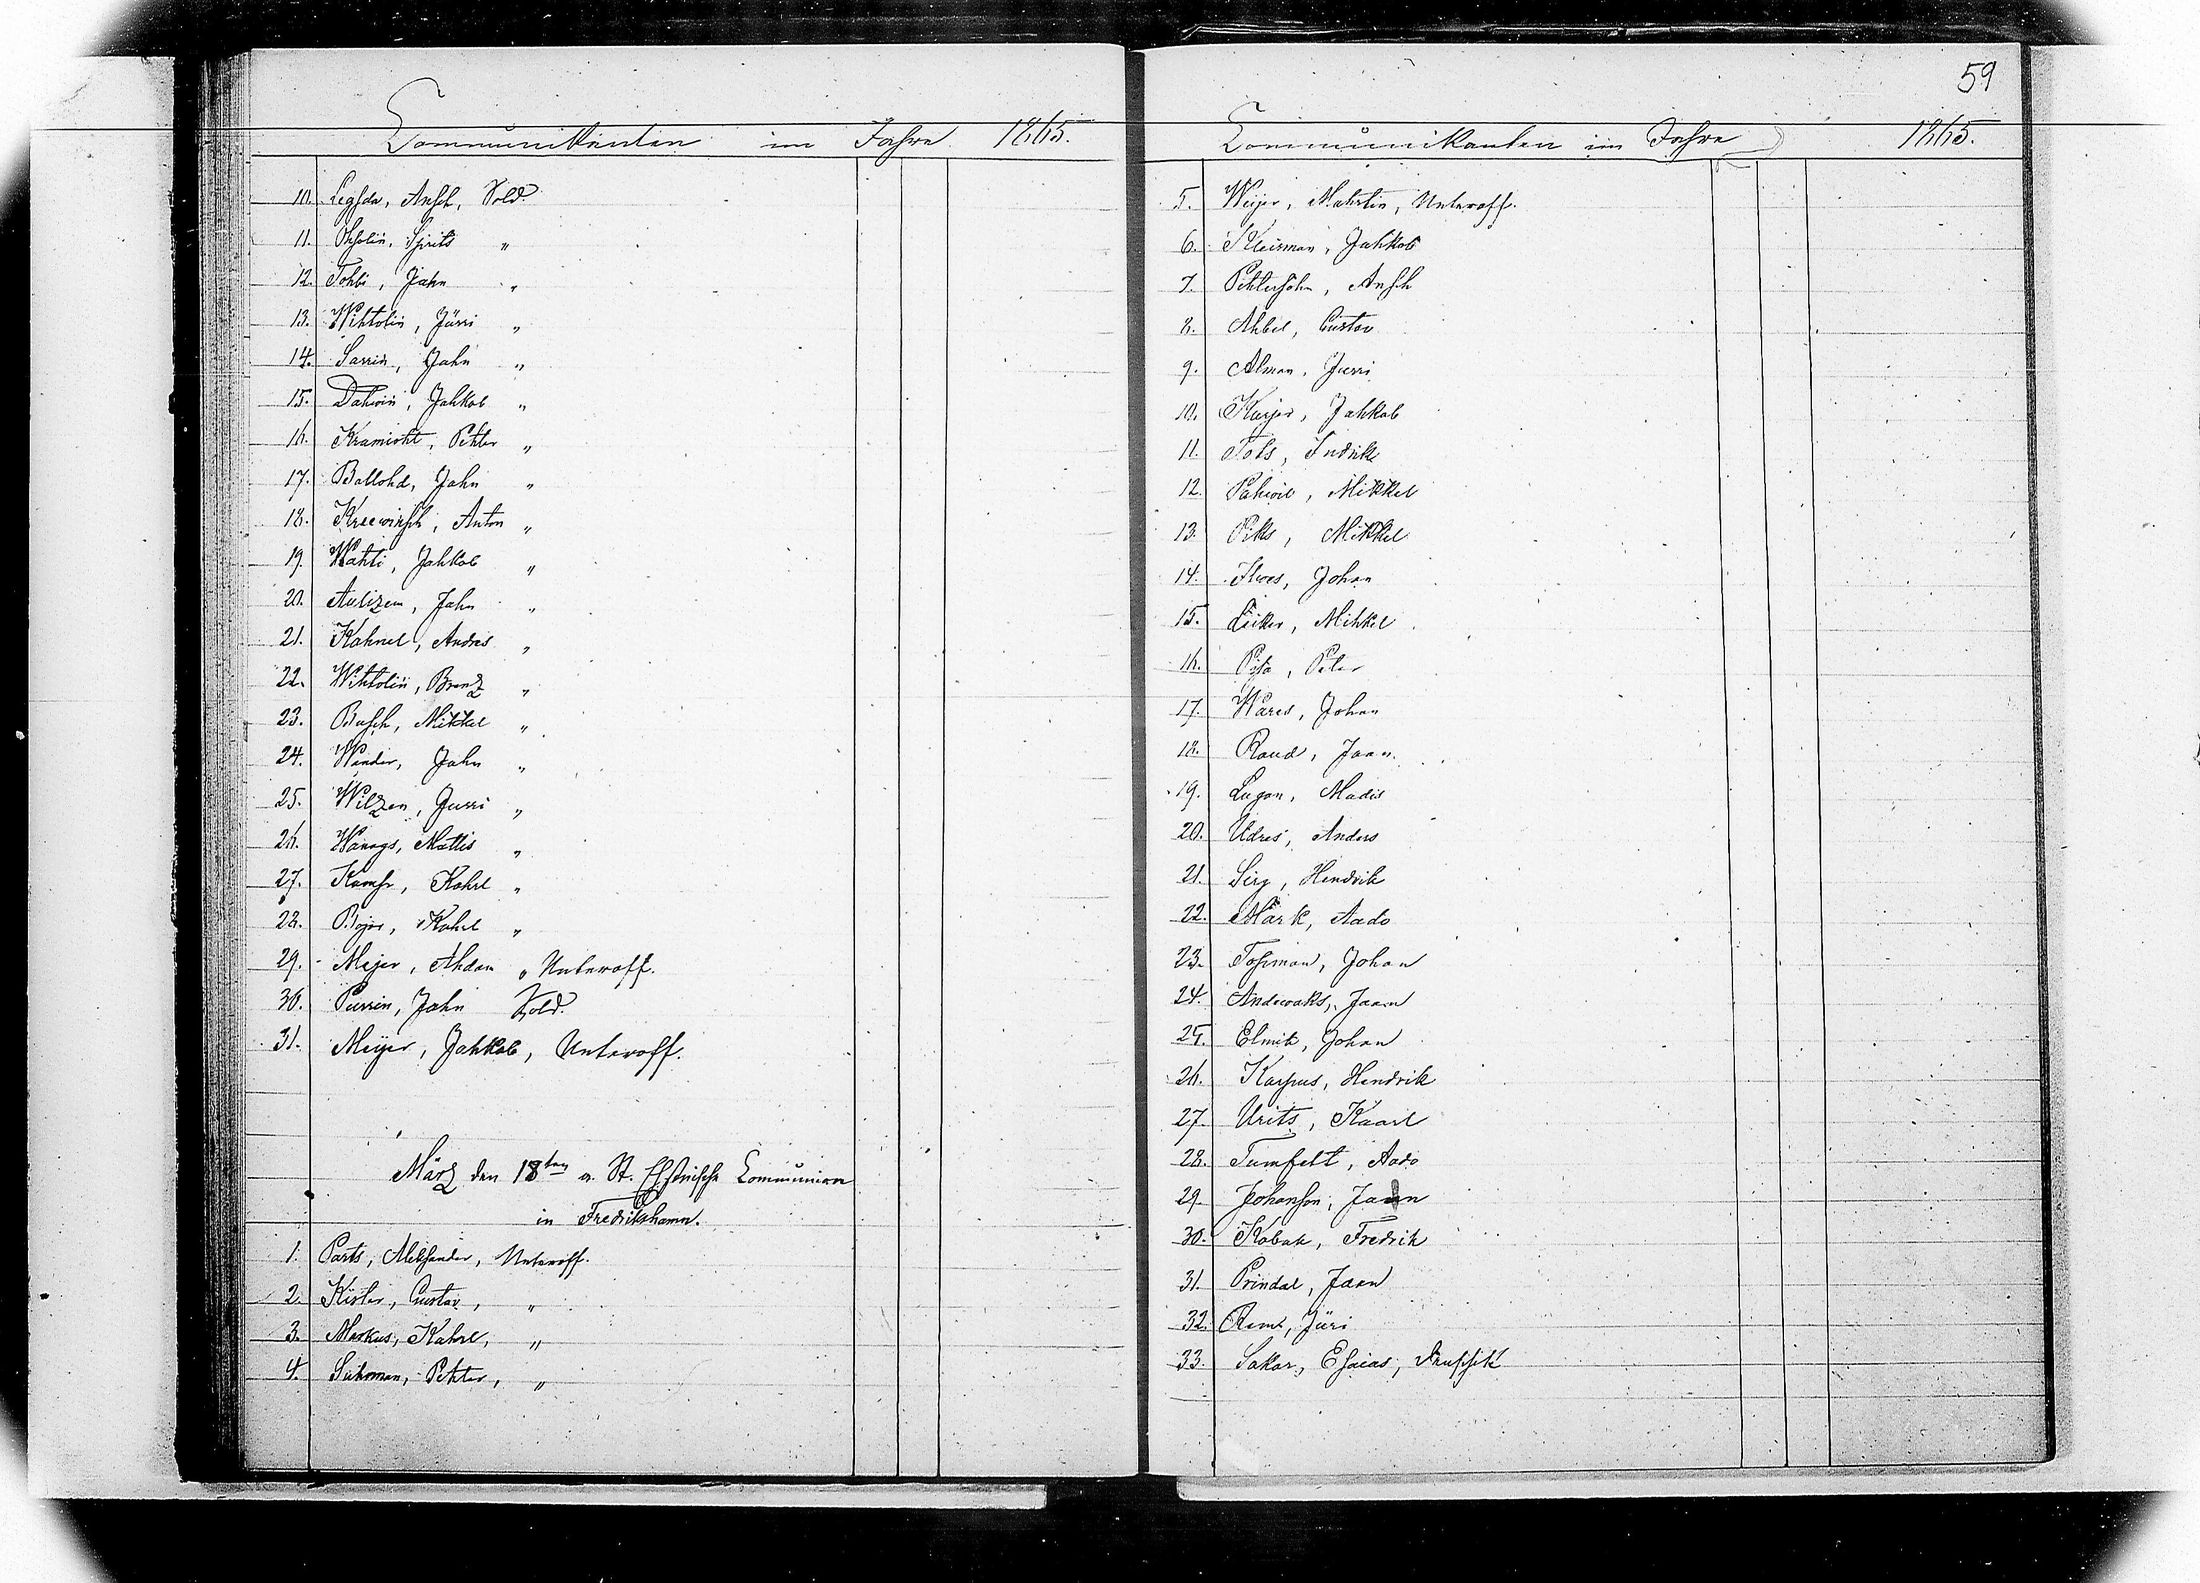 Communikanten im Jahre 1865.
10. Legsda, Ansch, Sold.
11. Ohsolin, Sprits "
12. Tohbi, Jahn "
13. Wihtolin, Jürri "
14. Sarrin, Jahn "
15. Dahwin, Jahkob "
16. Kramicht, Pehter "
17. Ballohd, Jahn "
18. Kreewinsch, Anton "
19. Wahti, Jahkob "
20. Aulizem, Jahn "
21. Kahnel, Andres "
22. Wihtolin, Brenz "
23. Busch, Mikkel "
24. Wender, Jahn "
25. Wilzen, Jurri "
26. Wanags, Mattis "
27. Kamsr, Kahrl "
28. Bojar, Kahrl "
29. Mejer, Ahdam " Unteroff.
30. Purrin, Jahn Sold.
31. Meijer, Jahkob, Unteroff.
März den 18ten a. St. Ehstnische Communion
in Fredrikshamn.
1. Parts, Aleksander, Unteroff.
2. Kisler, Gustav, "
3. Markus, Kahrl, "
4. Suhrman, Pehter, "
59
Communikanten im Jahre 1865.
5. Weijer, Mahrtin, Unteroff.
6. Kleisman, Jahkob
7. Pehtersohn, Ansch
8. Ahbel, Gustav
9. Alman, Jurri
10. Karjer, Jahkob
11. Tols, Indrik
12. Pahwil, Mikkel
13. Piks, Mikkel
14. Ilwes, Johan
15. Leiker, Mihkel
16. Pysa, Peter
17. Wares, Johan
18. Raud, Jaan.
19. Lugan, Madis
20. Udres, Anders
21. Sirg, Hendrik
22. Märk, Aado
23. Tossman, Johan
24. Anderwaks, Jaan
25. Elmik, Johan
26. Karpus, Hendrik
27. Urits, Kaarl
28. Tumfelt, Aado
29. Johanson, Jaan
30. Kobak, Fredrik
31. Prindal, Jaan
32. Remt, Jüri
33. Sakar, Esaias,